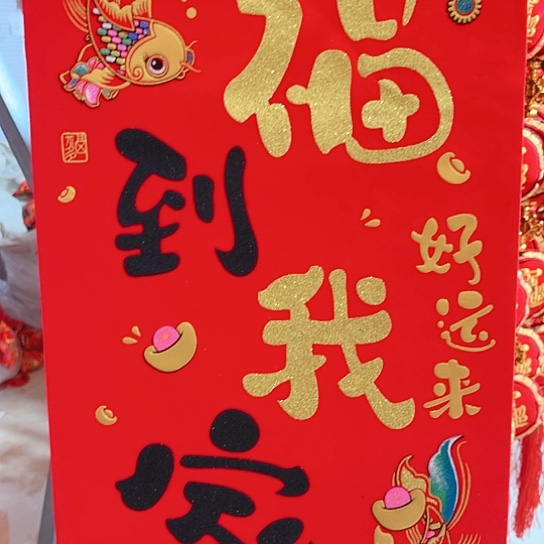 福
到
我
家
好运来